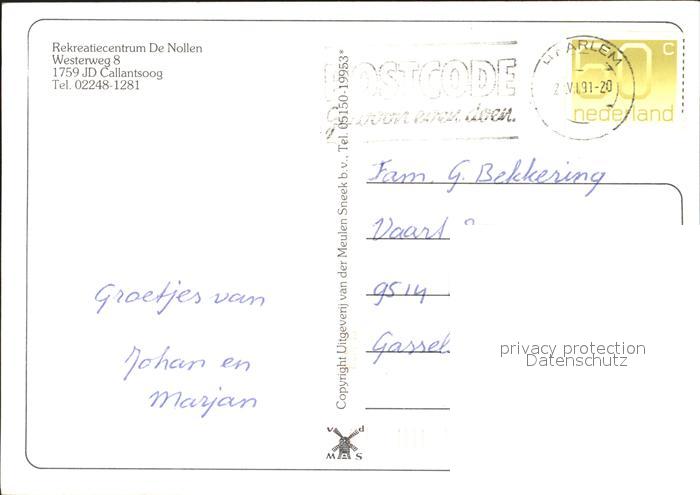 Rekreatiecentrum De Nollen
Westerweg 8
1759 JD Callantsoog
Tel. 02248-1281
POSTCODE
even doen.
HAARLEM
91-20
50 c
nederland
Copyright Uitgeverij van der Meulen Sneek b.v., Tel. 05150-19953*
Fam. G. Bekkering
Vaart
9514
Gassel
Groetjes van
Johan en
Marjan
v d
M S
privacy protection
Datenschutz